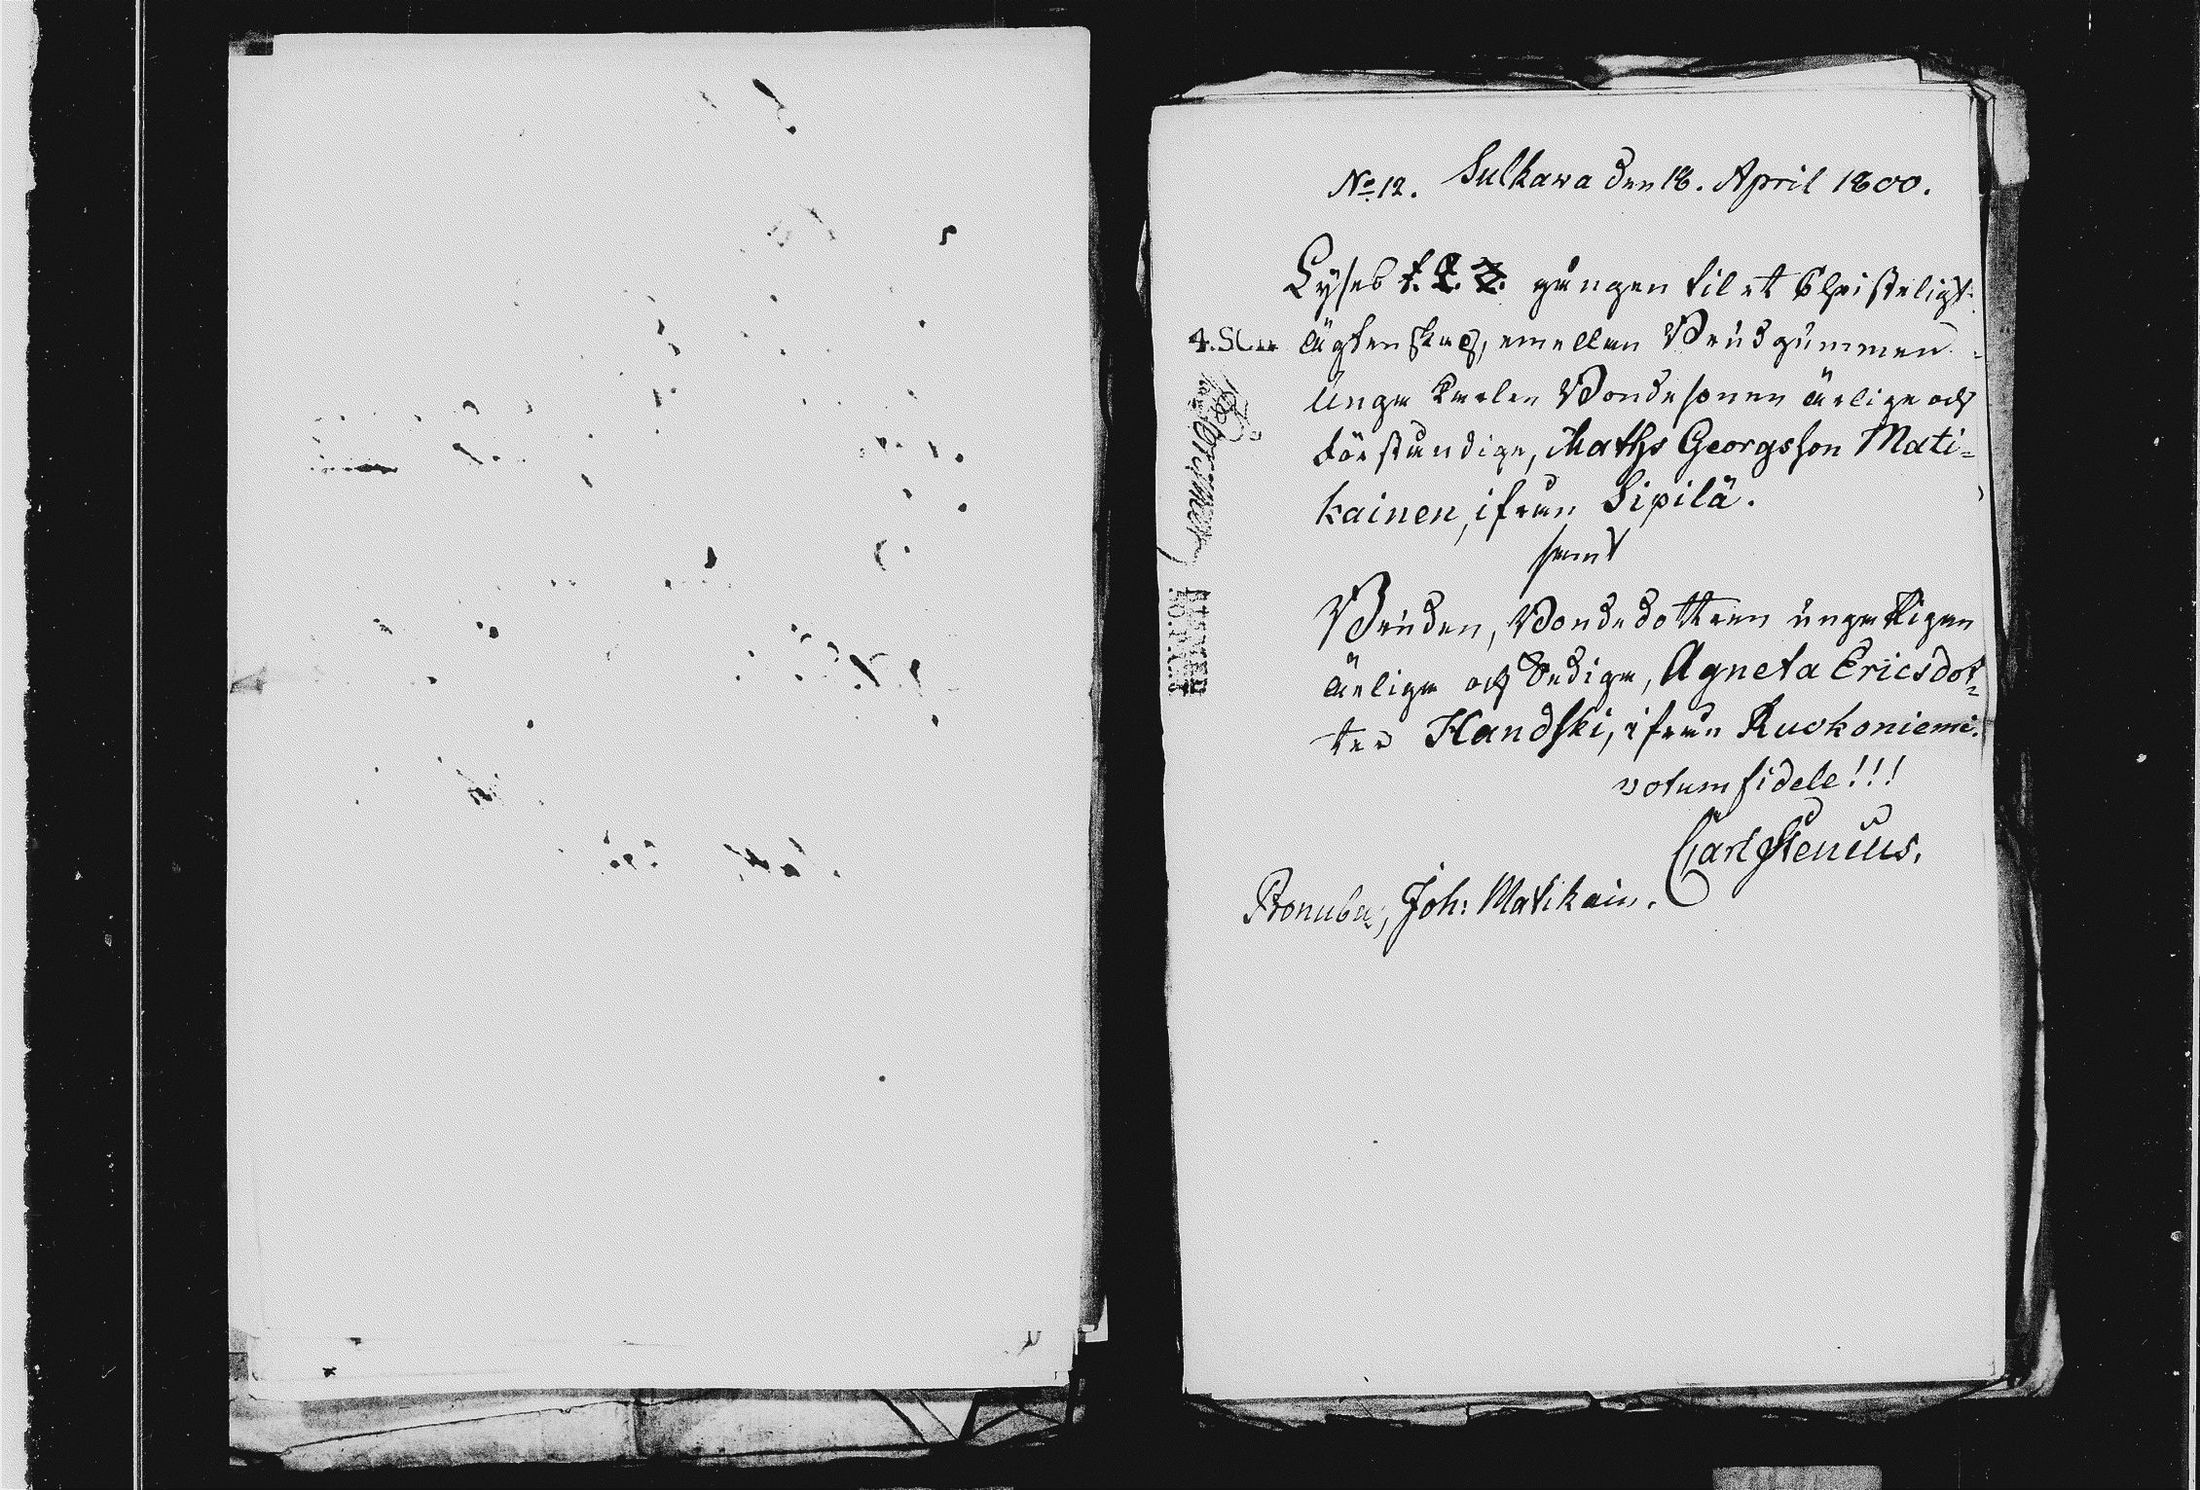 No 12. Sulkawa den 18. April 1800.
Lyses 1. 2. 3. gången til et Christeligt
ägtenskap, emellan Brudgummen
Unga Karlen Bondesonen ärlige och
förståndige, Maths Georgsson Mati=
kainen, ifrån Sipilä.
samt
Bruden, Bondedottren unga Pigan
ärliga och Sediga, Agneta Ericsdot=
ter Handski, ifrån Ruokoniemi.
votum fidele!!!
Carl Stenius.
Pronuba, Joh: Matikain.
4.SC